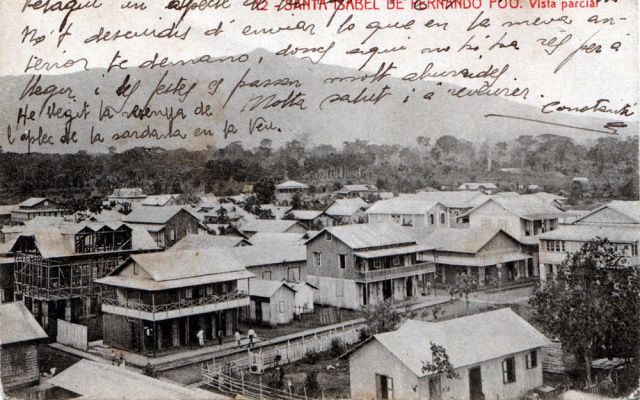 12 - SANTA ISABEL DE FERNANDO POO. Vista parcial
No't descuidis d'enviar lo que en la meva an-
terior te demano, donçs aqui no hi ha rés per a
llegir i les festes es passen molt aburrides.
He llegit la resenya de
l'aplec de la sardana en la Veu.
Molta salut i á reveurer.
Constantí